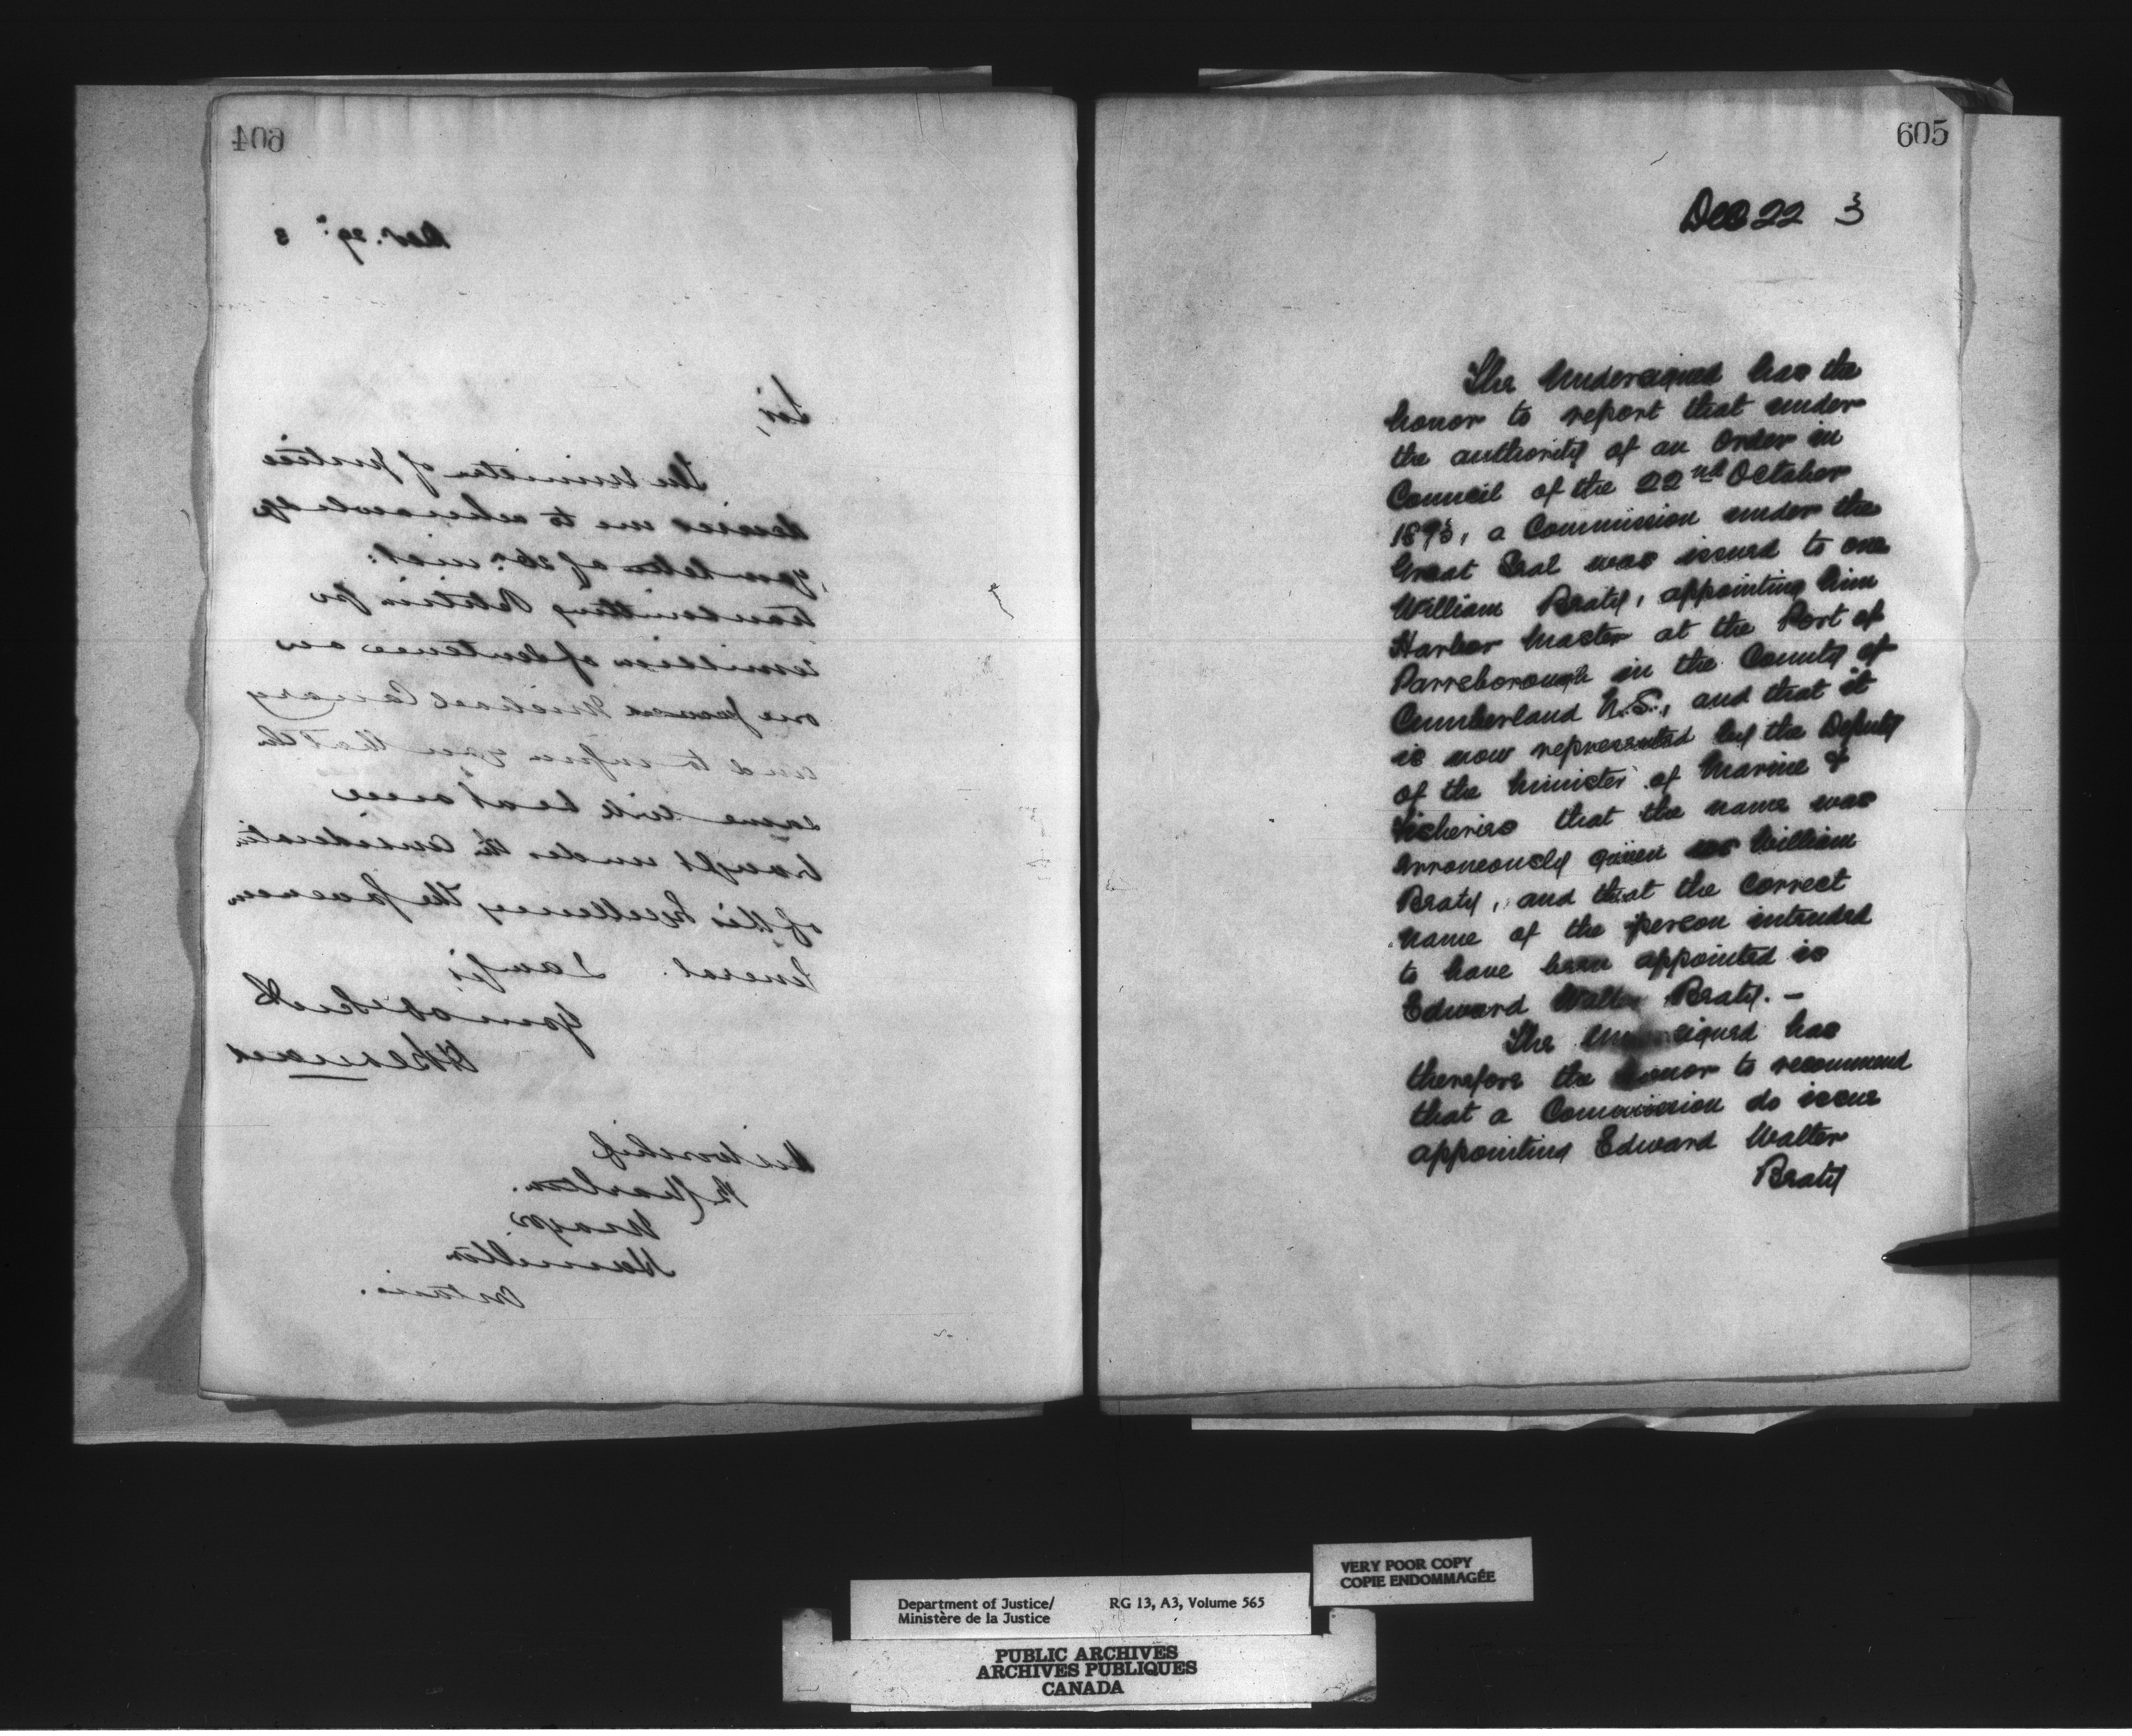 604
Nov. 29th 3
Sir,
The Minister of Justice
desires me to acknowledge
your letter of 26th inst:
transmitting Petition for
remission of sentence on
one Michael Canary
and to inform you that the
same will be at once
brought under the consideratn
of His Excellency the Governor
General. I am Sir
Your obt Svt
H Bernard
His Worship
B Charlton.
Mayor
Hamilton
Ontario.
605
Dec 22 3
The Undersigned has the
honor to report that under
the authority of an Order in
Council of the 22nd October
1873, a Commission under the
Great Seal was issued to one
William Beaty, appointing him
Harbor Master at the Port of
Parrsborough in the County of
Cumberland N.S., and that it
is now represented by the Deputy
of the Minister of Marine &
Fisheries that the name was
erroneously given as William
Beaty, and that the correct
name of the person intended
to have been appointed is
Edward Walter Beaty. –
The Undersigned has
therefore the honor to recommend
that a Commission do issue
appointing Edward Walter
Beaty
VERY POOR COPY
COPIE ENDOMMAGÉE
Department of Justice/ RG 13, A3, Volume 565
Ministère de la Justice
PUBLIC ARCHIVES
ARCHIVES PUBLIQUES
CANADA